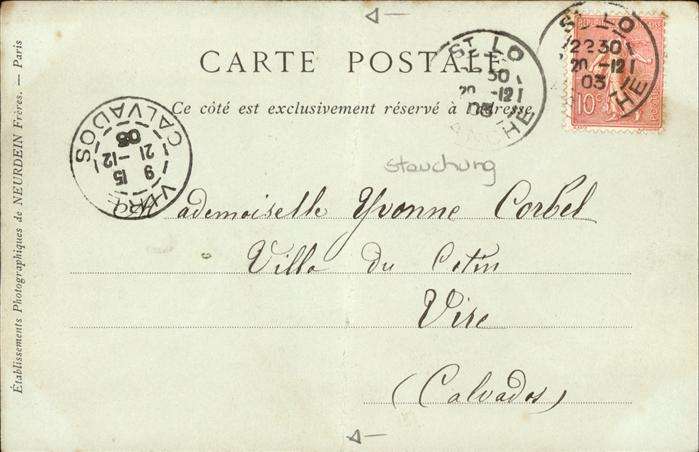 CARTE POSTALE
Ce côté est exclusivement réservé à l'adresse
ST LO
22 30
20 -12
03
MANCHE
ST LO
22 30
20 -12
03
CHE
10
VIRE
15
9
21 -12
03
CALVADOS
Stauchung
Mademoiselle Yvonne Corbel
Villa du Cotin
Vire
(Calvados)
Établissements Photographiques de NEURDEIN Frères. — Paris